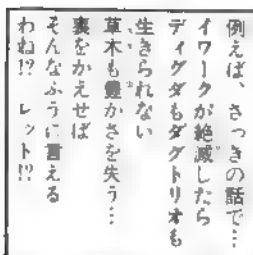 例えば、さっきの話で…
イワークが絶滅したら
ディグダもダグトリオも
生きられない
草木も豊かさを失う…
裏をかえせば
そんなふうに言える
わね!? レット!?